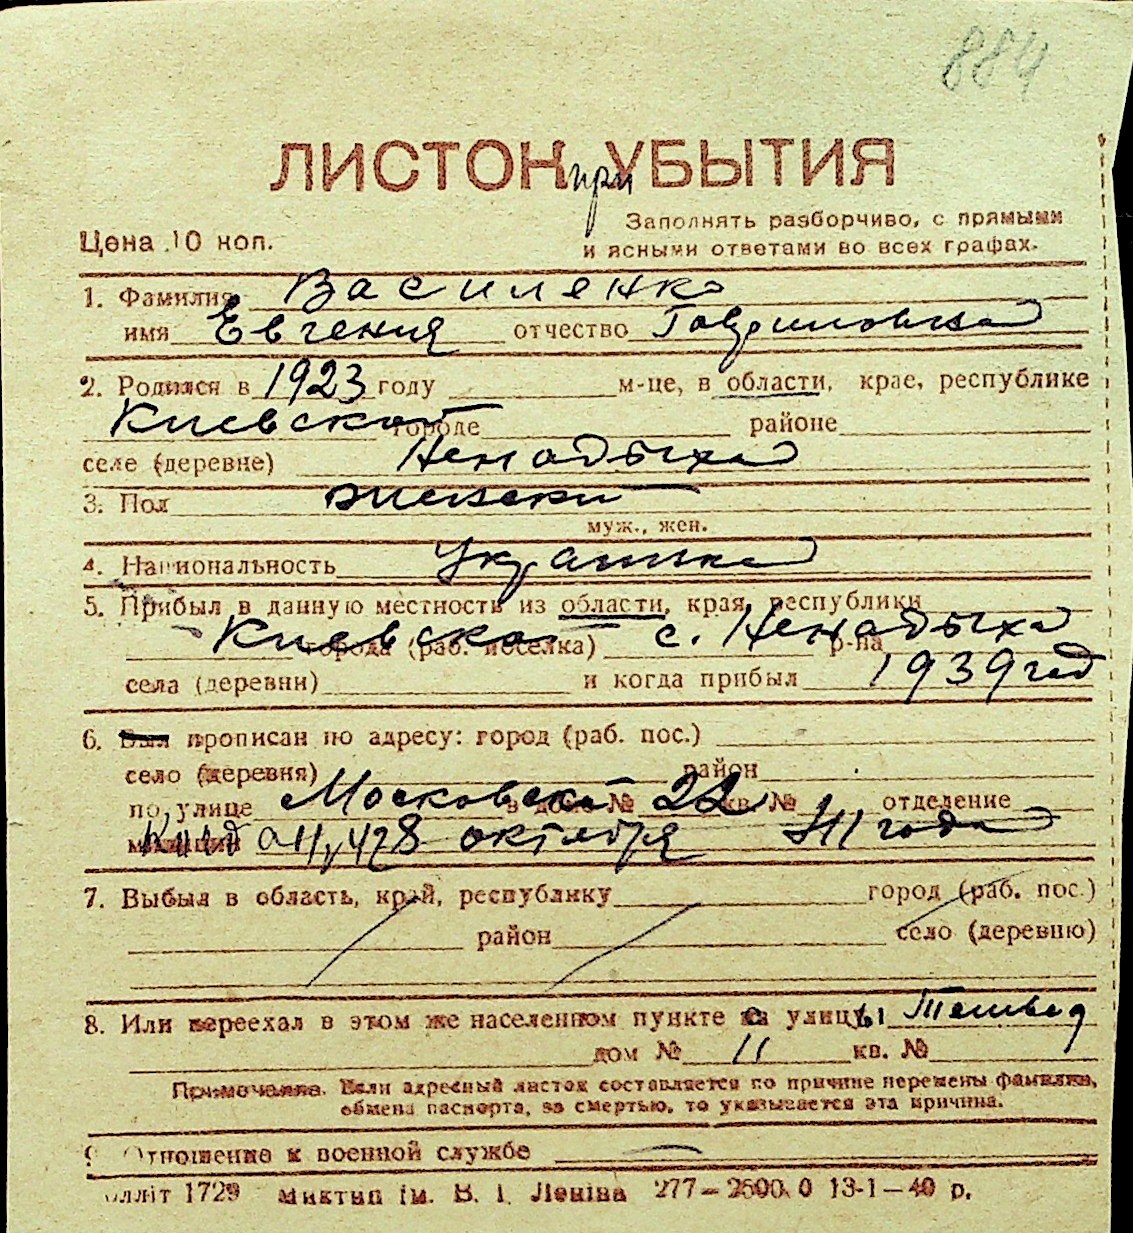 884
ЛИСТОК при УБЫТИЯ
Заполнять разборчиво, с прямыми
Цена 10 коп. и ясными ответами во всех графах.
1. Фамилия Василенко
имя Евгения отчество Гавриловна
2. Родился в 1923 году м-це, в области, крае, республике
Киевской городе районе
селе (деревне) Ненадыха
3. Пол женский
муж., жен.
4. Национальность Украинка
5. Прибыл в данную местность из области, края, республики
Киевской города (раб. поселка) с. Ненадыха р-на
села (деревни) и когда прибыл 1939 год
6. Был прописан по адресу: город (раб. пос.)
село (деревня) район
по улице Московской в доме № 22 кв. № отделение
милиции октября года
7. Выбыл в область, край, республику город (раб. пос.)
район село (деревню)
8. Или переехал в этом же населенном пункте с улицы
дом № 11 кв. №
Примечание. Если адресный листок составляется по причине перемены фамилии,
обмена паспорта, за смертью, то указывается эта причина.
9 Отношение к военной службе —
олліт 1729 Миктип ім. В. І. Леніна 277—2500.0 13-1—40 р.